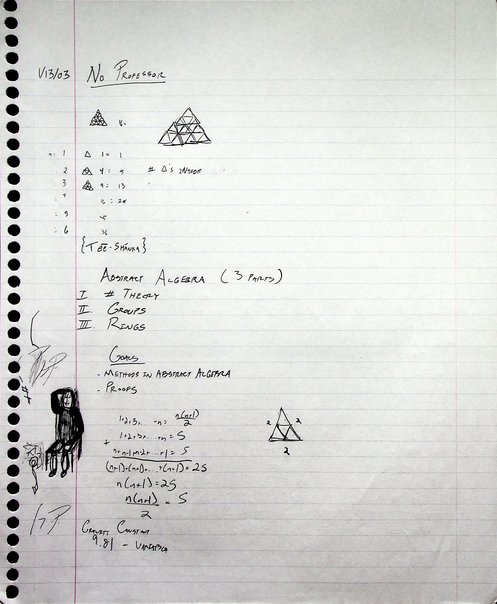 1/13/03 No Professor
n: 1 △ 1 = 1
2 4: 5 # △'s inside
3 9: 13
4 16: 25
5 25
6 36
{Tee-Shanka}
Abstract Algebra (3 parts)
I # Theory
II Groups
III Rings
Goals
- Methods in Abstract Algebra
- Proofs
1+2+3+...+n = n(n+1)/2
1+2+3+...+n = S
+ n+n-1+n-2+...+1 = S
(n+1)+(n+1)+...+(n+1) = 2S
2 2
2
n(n+1) = 2S
n(n+1)/2 = S
Constant
9.81 -